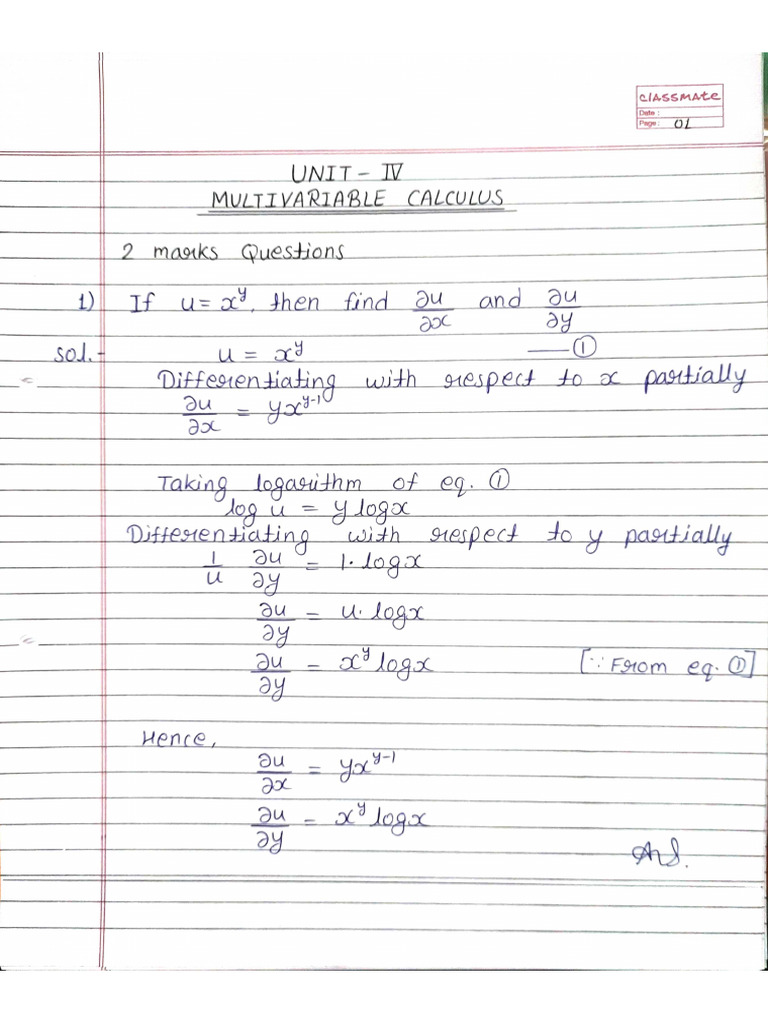 classmate
Date :
Page : 01
UNIT - IV
MULTIVARIABLE CALCULUS
2 marks Questions
1) If u = x^y, then find ∂u/∂x and ∂u/∂y
Sol.- u = x^y —— ①
Differentiating with respect to x partially
∂u/∂x = yx^{y-1}
Taking logarithm of eq. ①
log u = y logx
Differentiating with respect to y partially
1/u ∂u/∂y = 1. logx
∂u/∂y = u. logx
∂u/∂y = x^y logx [∵ From eq. ①]
Hence,
∂u/∂x = yx^{y-1}
∂u/∂y = x^y logx
Ans.